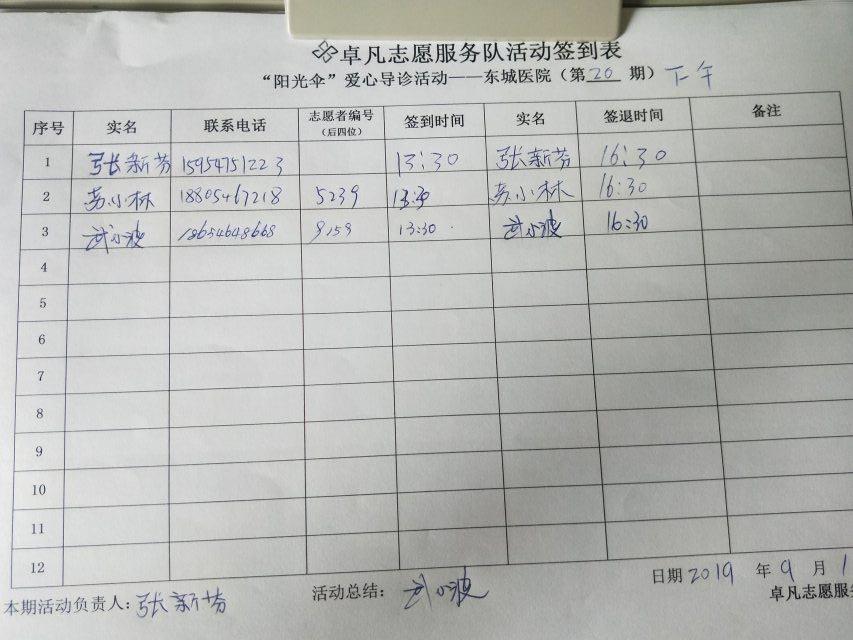 卓凡志愿服务队活动签到表
“阳光伞”爱心导诊活动——东城医院（第20期）下午
序号 实名 联系电话 志愿者编号（后四位） 签到时间 实名 签退时间 备注
1 张新芬 15954751223 13:30 张新芬 16:30
2 苏小林 18805467218 5239 13:30 苏小林 16:30
3 武小波 18654648668 9159 13:30 武小波 16:30
4
5
6
7
8
9
10
11
12
本期活动负责人：张新芬 活动总结：武小波 日期2019年9月1
卓凡志愿服